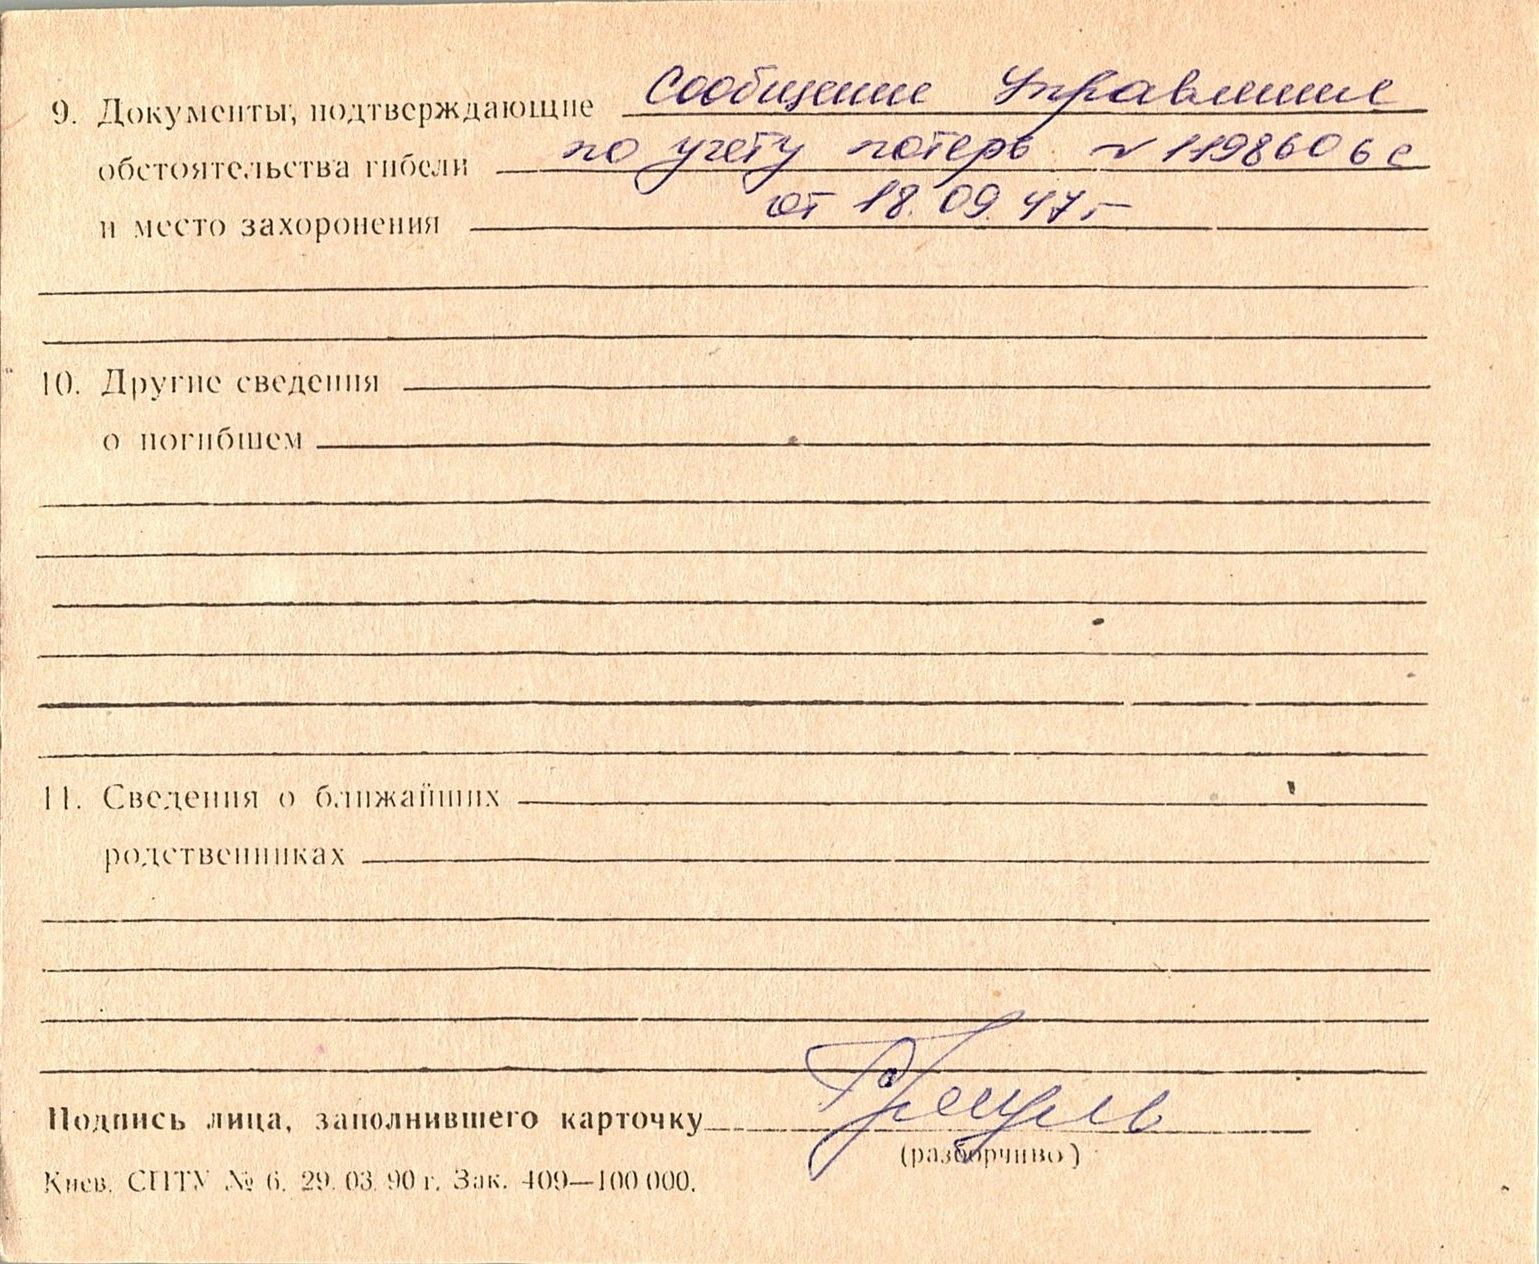 9. Документы, подтверждающие Сообщение Управление
обстоятельства гибели по учету потерь N 1198606с
и место захоронения от 18.09.47 г
10. Другие сведения
о погибшем
11. Сведения о ближайших
родственниках
Подпись лица, заполнившего карточку
(разборчиво)
Киев. СПТУ № 6. 29. 03. 90 г. Зак. 409—100 000.